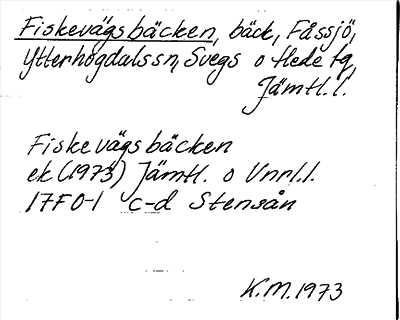 Fiskevägsbäcken, bäck, Fåssjö,
Ytterhogdals sn, Svegs o Hede tg,
Jämtl. l.
Fiskevägsbäcken
ek (1973) Jämtl. o Vnrl. l.
17F0-1 c-d Stensån
K.M. 1973